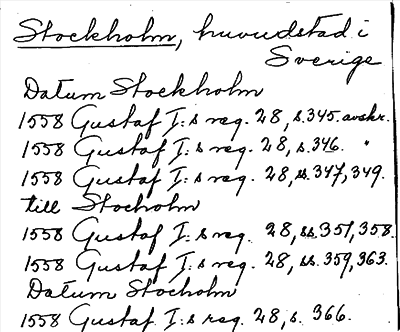 Stockholm, huvudstad i
Sverige
Datum Stockholm
1558 Gustaf I:s reg. 28, s. 345. avskr.
1558 Gustaf I:s reg. 28, s. 346. "
1558 Gustaf I:s reg. 28, ss. 347, 349.
till Stocholm
1558 Gustaf I:s reg. 28, ss. 351, 358.
1558 Gustaf I:s reg. 28, ss. 359, 363.
Datum Stocholm
1558 Gustaf I:s reg. 28, s. 366.